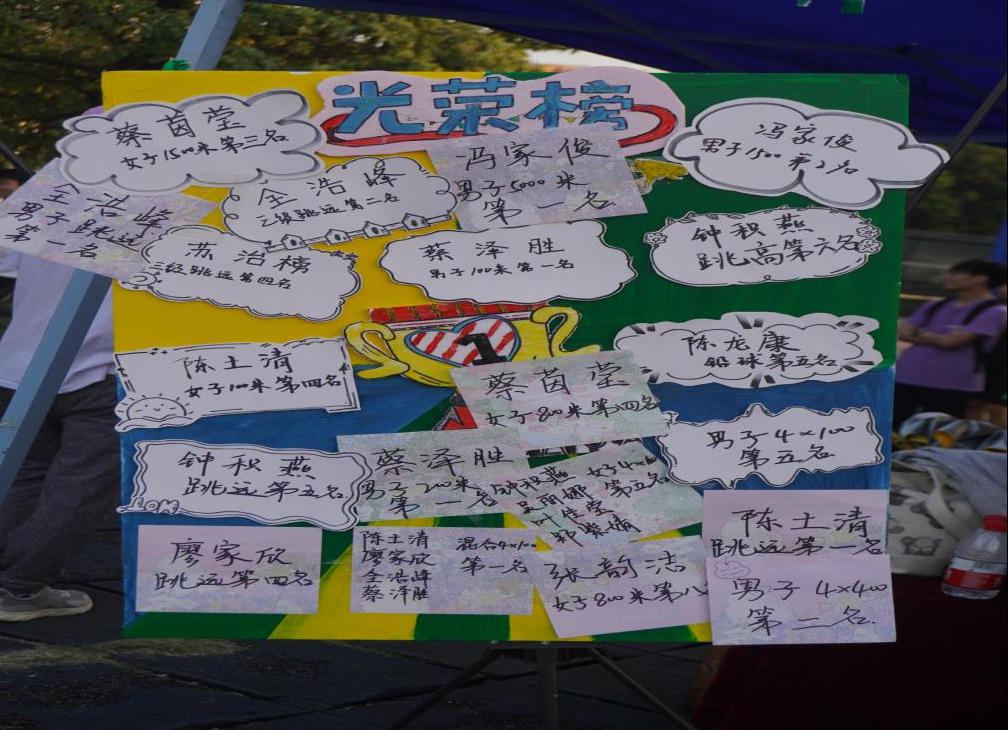 光荣榜
蔡茵莹
女子1500米第三名
冯家俊
男子1500第2名
冯家俊
男子5000米
第一名
全浩峰
男子跳远
第一名
全浩峰
三级跳远第二名
苏治榜
三级跳远第四名
蔡泽胜
男子100米第一名
钟积燕
跳高第六名
1
陈土清
女子100米第四名
陈龙康
铅球第五名
蔡茵莹
女子800米第四名
男子4×100
第五名
钟积燕
跳远第五名
蔡泽胜
男子200米
第一名
钟积燕 女子4×
第五名
叶佳莹
廖家欣
跳远第四名
陈土清
廖家欣
全浩峰
蔡泽胜
混合4×100
第一名
张韵洁
女子800米第八
陈土清
跳远第一名
男子4×400
第二名